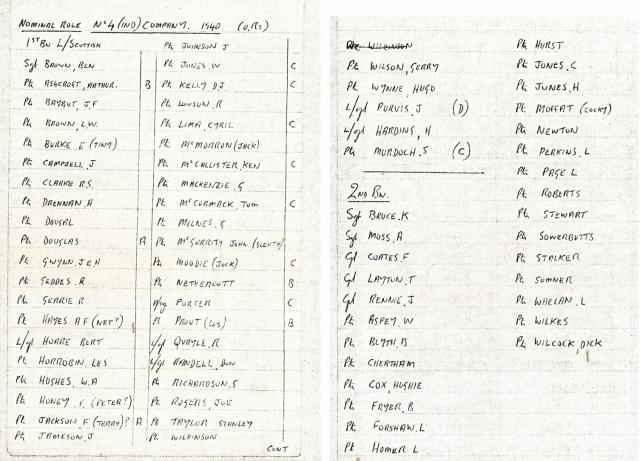 NOMINAL ROLE Nº4 (IND) COMPANY. 1940 (O.RS)
1ST BN L/SCOTTISH
Sgt BROWN, BEN
Pte ASHCROFT, ARTHUR. B
Pte BAYBUT, J.F
Pte BROWN, L.W.
Pte BURKE E (TINY)
Pte CAMPBELL, J
Pte CLARKE R.S.
Pte DRENNAN. A
Pte DOUGAL
Pte DOUGLAS A
Pte GWYNN. J.E.H
Pte GEDDES. R
Pte GERRIE R
Pte HAYES A F (NAT?)
L/Cpl HORRE BERT
Pte HORROBIN, LES
Pte HUGHES, W.A
Pte HONEY. F. (PETER?)
Pte JACKSON, F (TERRY)? A
Pte JAMESON. J
Pte JOHNSON J
Pte JONES. W C
Pte KELLY DJ C
Pte LOWSON. R
Pte LIMA, CYRIL C
Pte McMORRON (JACK)
Pte McCALLISTER, KEN C
Pte MACKENZIE. G
Pte McCORMACK, TOM C
Pte MILNES. G
Pte McGARRITY JOHN (SLEUTH)
Pte MOODIE (JOCK) C
Pte NETHERCOTT B
PORTER C
Pte PROUT (LES) B
L/Cpl QUAYLE. R
L/Cpl RANDELL, DON
Pte RICHARDSON. S
Pte ROGERS, JOE
Pte TAYLOR STANLEY
Pte WILKINSON
CONT
Pte WILKINSON
Pte WILSON, GERRY
Pte WYNNE, HUGO
L/Cpl PURVIS. J (D)
L/Cpl HARDING, H
Pte MURDOCH. S (C)
2ND BN.
Sgt BRUCE. K
Sgt MOSS. A
Cpl COATES. F
Cpl LAYTON. T
Cpl RENNIE. J
Pte ASPEY. W
Pte BLYTH. B
Pte CHEATHAM
Pte COX, HUGHIE
Pte FRYER. B
Pte FORSHAW. L
Pte HOMER L
Pte HURST
Pte JONES. C
Pte JONES. H
Pte MOFFAT (COCKY)
Pte NEWTON
Pte PERKINS. L
Pte PAGE L
Pte ROBERTS
Pte STEWART
Pte SOWERBUTTS
Pte STALKER
Pte SUMNER
Pte WHELAN. L
Pte WILKES
Pte WILCOCK, DICK